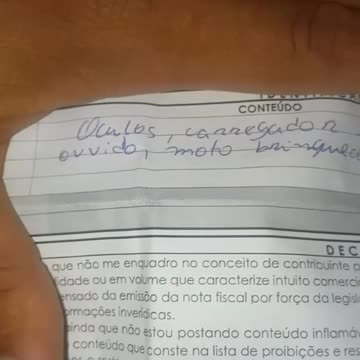 CONTEÚDO
Oculos, carregador
ouvido, moto brinqued
DEC
que não me enquadro no conceito de contribuinte
idade ou em volume que caracterize intuito comerci
ensado da emissão da nota fiscal por força da legis
ormações inverídicas.
ainda que não estou postando conteúdo inflamá
conteúdo que conste na lista de proibições e res